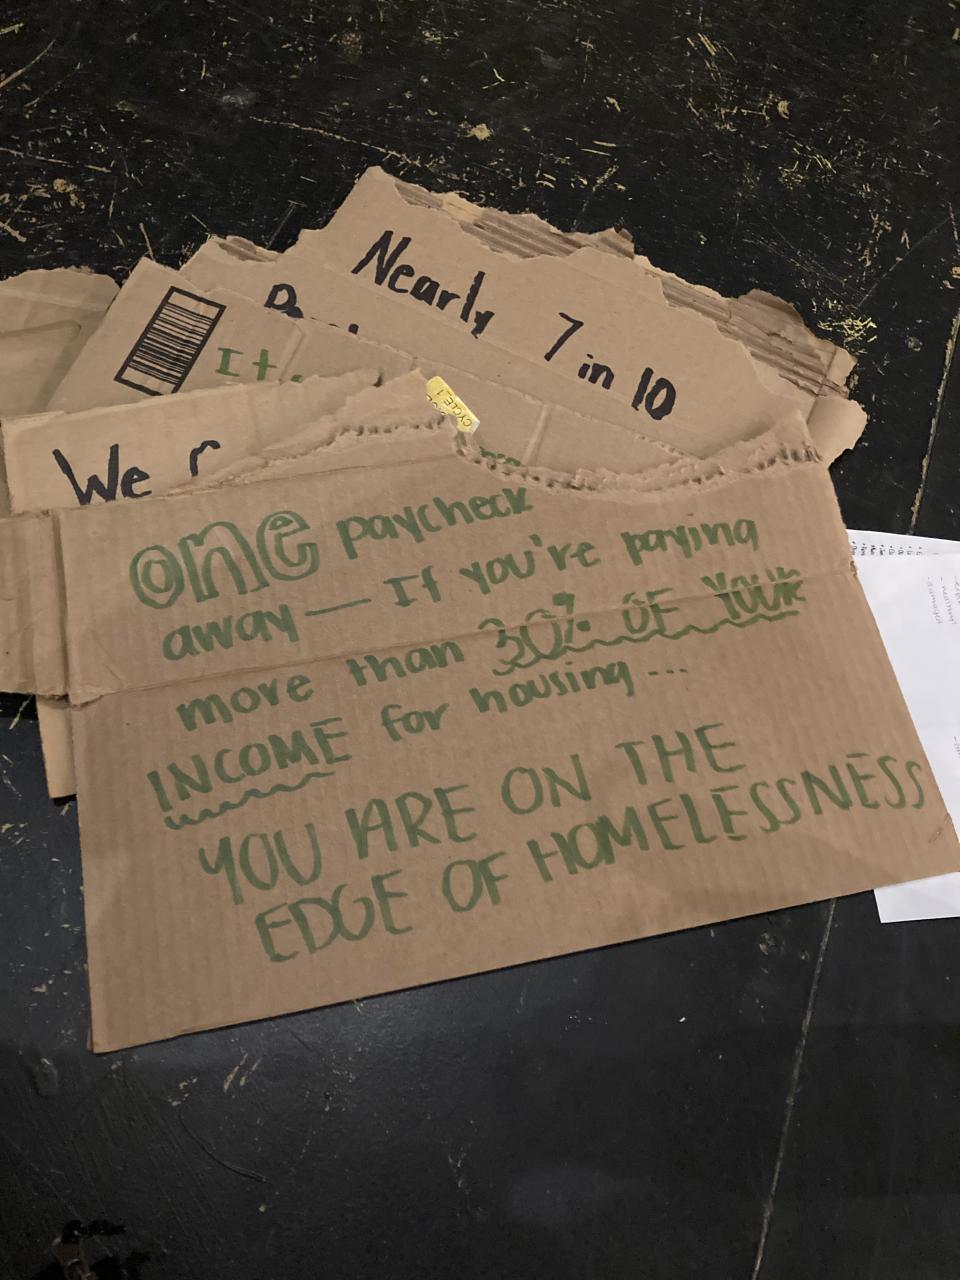 Nearly 7 in 10
It
We
CYCLE_1
one paycheck
away — If you're paying
more than 30% OF YOUR
INCOME for housing...
YOU ARE ON THE
EDGE OF HOMELESSNESS